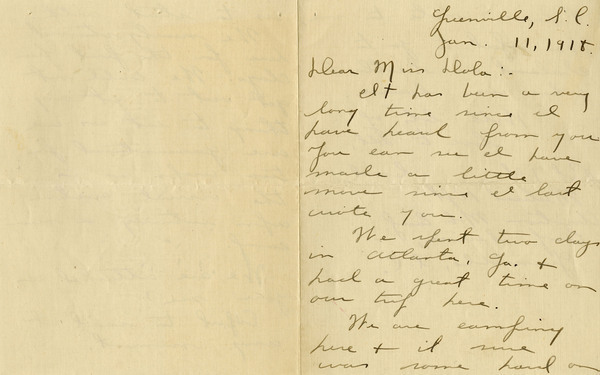 Greenville, S.C.
Jan. 11, 1918.
Dear Miss Dola:-
It has been a very
long time since I
have heard from you
You can see I have
made a little
move since I last
wrote you.
We spent two days
in Atlanta, Ga. +
had a great time on
our trip here.
We are camping
here + it sure
was some hard on